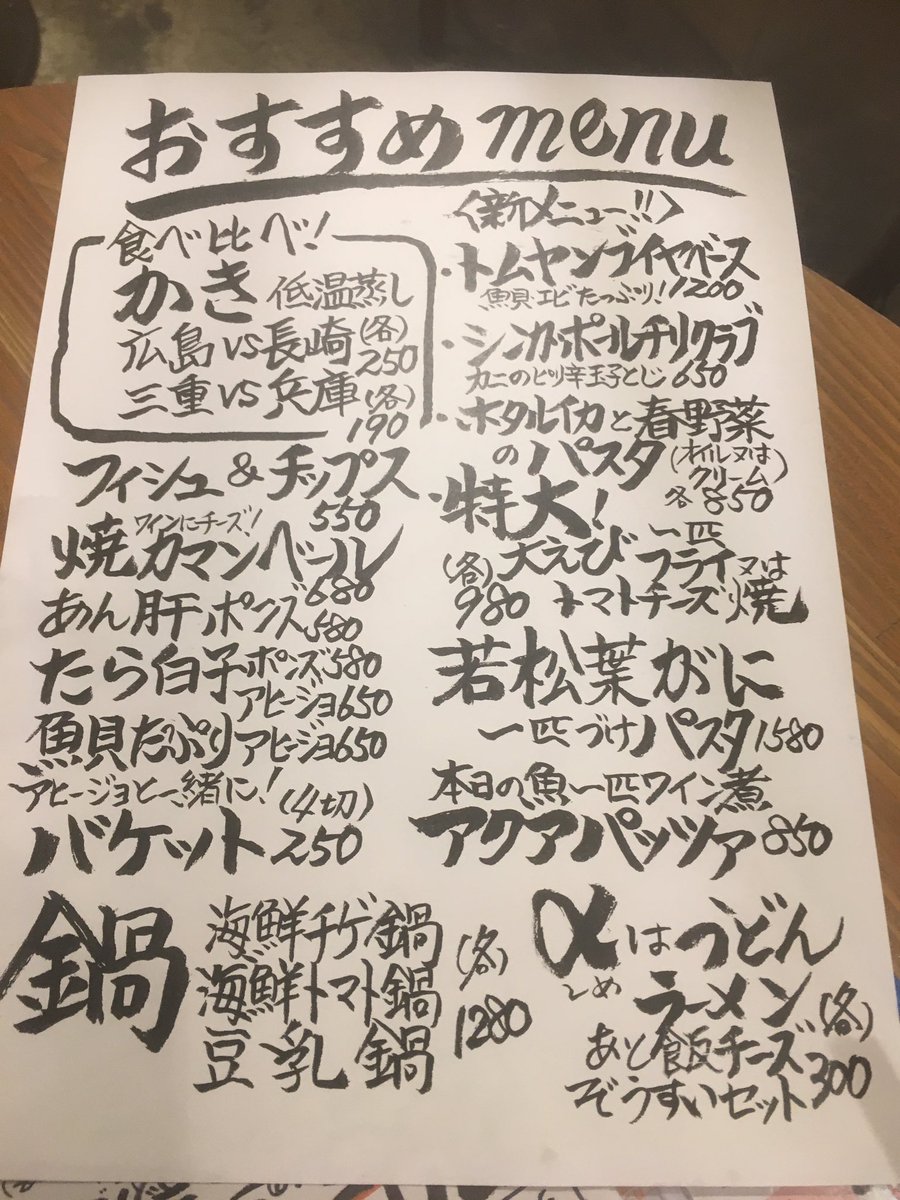 おすすめ menu
食べ比べ!
かき 低温蒸し
広島 VS 長崎 (各) 250
三重 VS 兵庫 (各) 190
フィシュ & チップス 550
ワインにチーズ!
焼カマンベール 680
あん肝ポンズ 580
たら白子 ポンズ 580
アヒージョ 650
魚貝たっぷりアヒージョ 650
アヒージョと一緒に! (4切)
バケット 250
〈新メニュー!!〉
・トムヤンブイヤベース
魚貝エビたっぷり! 1200
・シンガポールチリクラブ
カニのピリ辛玉子とじ 650
・ホタルイカと春野菜
のパスタ (オイル又はクリーム) 各850
・特大!
大えび一匹フライ又は
(各) 980 トマトチーズ焼
若松葉がに
一匹づけパスタ 1580
本日の魚一匹ワイン煮
アクアパッツァ 850
鍋
海鮮チゲ鍋
海鮮トマト鍋
豆乳鍋
(各) 1280
〆はうどん
しめ ラーメン
あと飯チーズ
ぞうすいセット
(各) 300